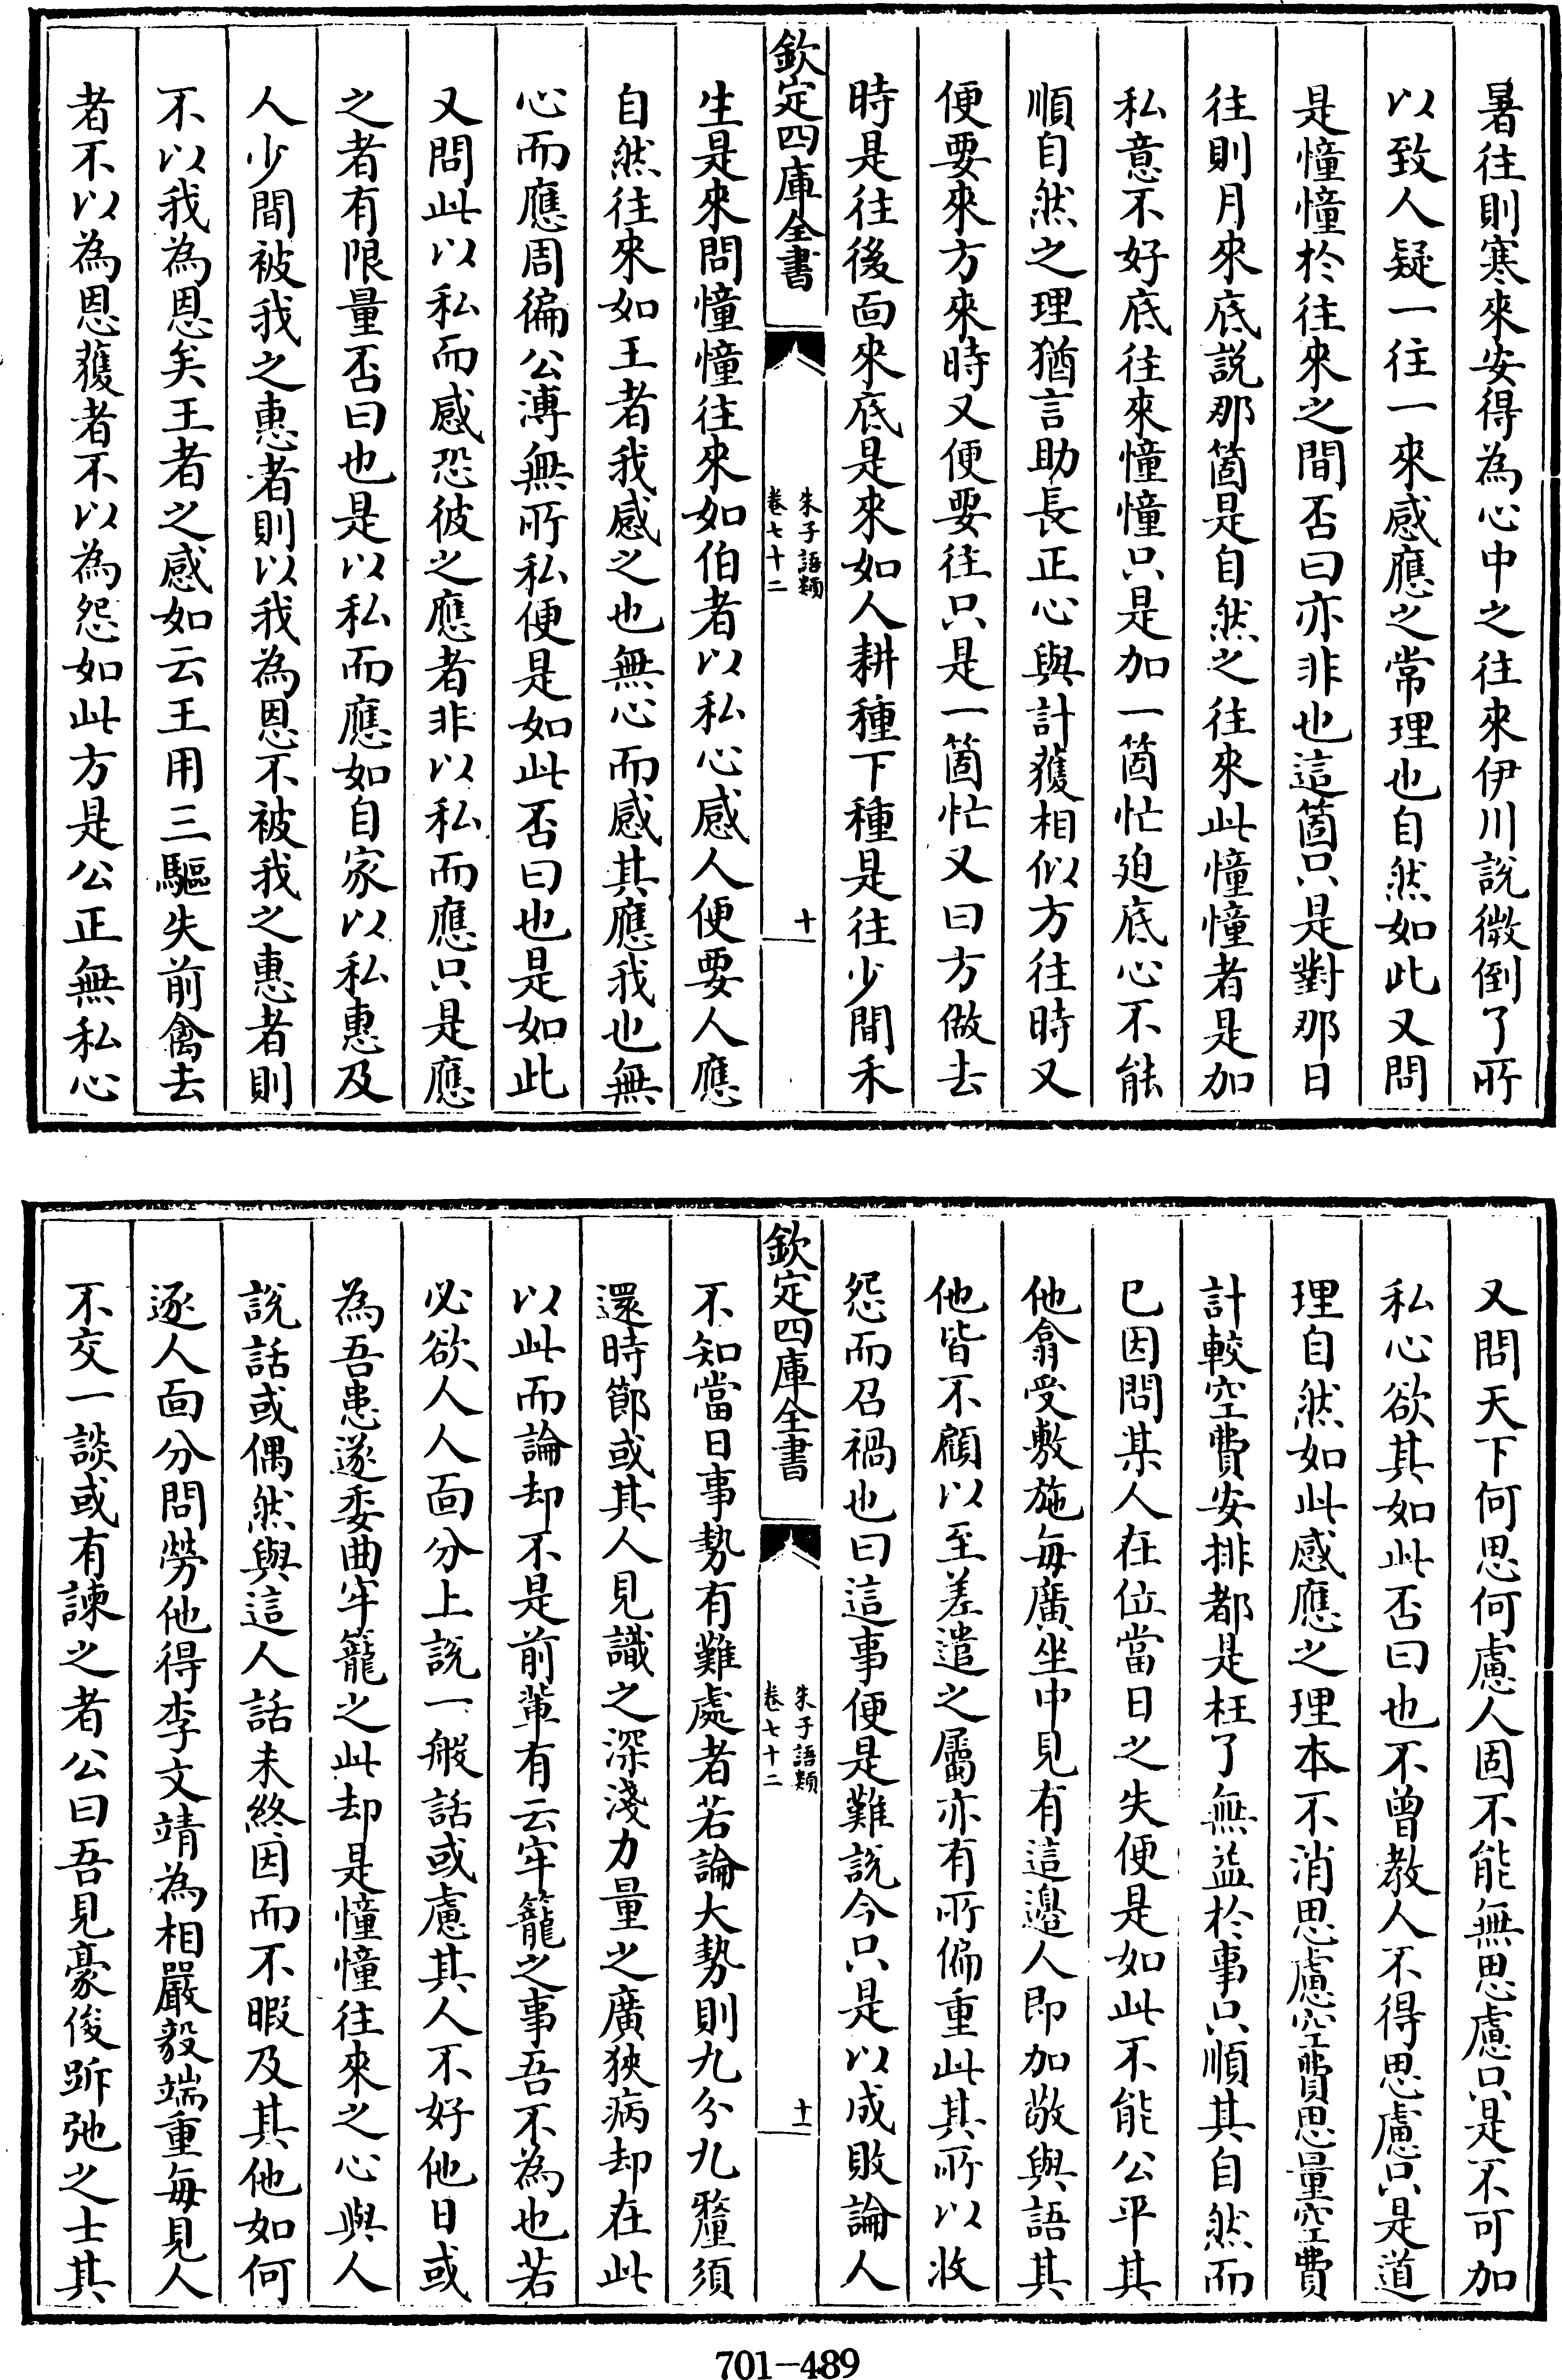 暑往則寒來安得為心中之往來伊川說微倒了所
以致人疑一往一來感應之常理也自然如此又問
是憧憧於往來之間否曰亦非也這箇只是對那日
往則月來底説那箇是自然之往來此憧憧者是加
私意不好底往來憧憧只是加一箇忙迫底心不能
順自然之理猶言助長正心與計獲相似方往時又
便要來方來時又便要往只是一箇忙又曰方做去
時是往後面來底是來如人耕種下種是往少間禾
欽定四庫全書
朱子語類
卷七十二
十
生是來問憧憧往來如伯者以私心感人便要人應
自然往來如王者我感之也無心而感其應我也無
心而應周徧公溥無所私便是如此否曰也是如此
又問此以私而感恐彼之應者非以私而應只是應
之者有限量否曰也是以私而應如自家以私惠及
人少間被我之惠者則以我為恩不被我之惠者則
不以我為恩矣王者之感如云王用三驅失前禽去
者不以為恩獲者不以為怨如此方是公正無私心
又問天下何思何慮人固不能無思慮只是不可加
私心欲其如此否曰也不曾教人不得思慮只是道
理自然如此感應之理本不消思慮空費思量空費
計較空費安排都是枉了無益於事只順其自然而
已因問某人在位當日之失便是如此不能公平其
他翕受敷施每廣坐中見有這邉人即加敬與語其
他皆不顧以至差遣之屬亦有所偏重此其所以收
怨而召禍也曰這事便是難說今只是以成敗論人
欽定四庫全書
朱子語類
卷七十二
十一
不知當日事勢有難處者若論大勢則九分九釐須
還時節或其人見識之深淺力量之廣狹病却在此
以此而論却不是前軰有云牢籠之事吾不為也若
必欲人人面分上說一般話或慮其人不好他日或
為吾患遂委曲牢籠之此却是憧憧往來之心與人
說話或偶然與這人話未終因而不暇及其他如何
逐人面分問勞他得李文靖為相嚴毅端重每見人
不交一談或有諫之者公曰吾見豪俊跅弛之士其
701-489